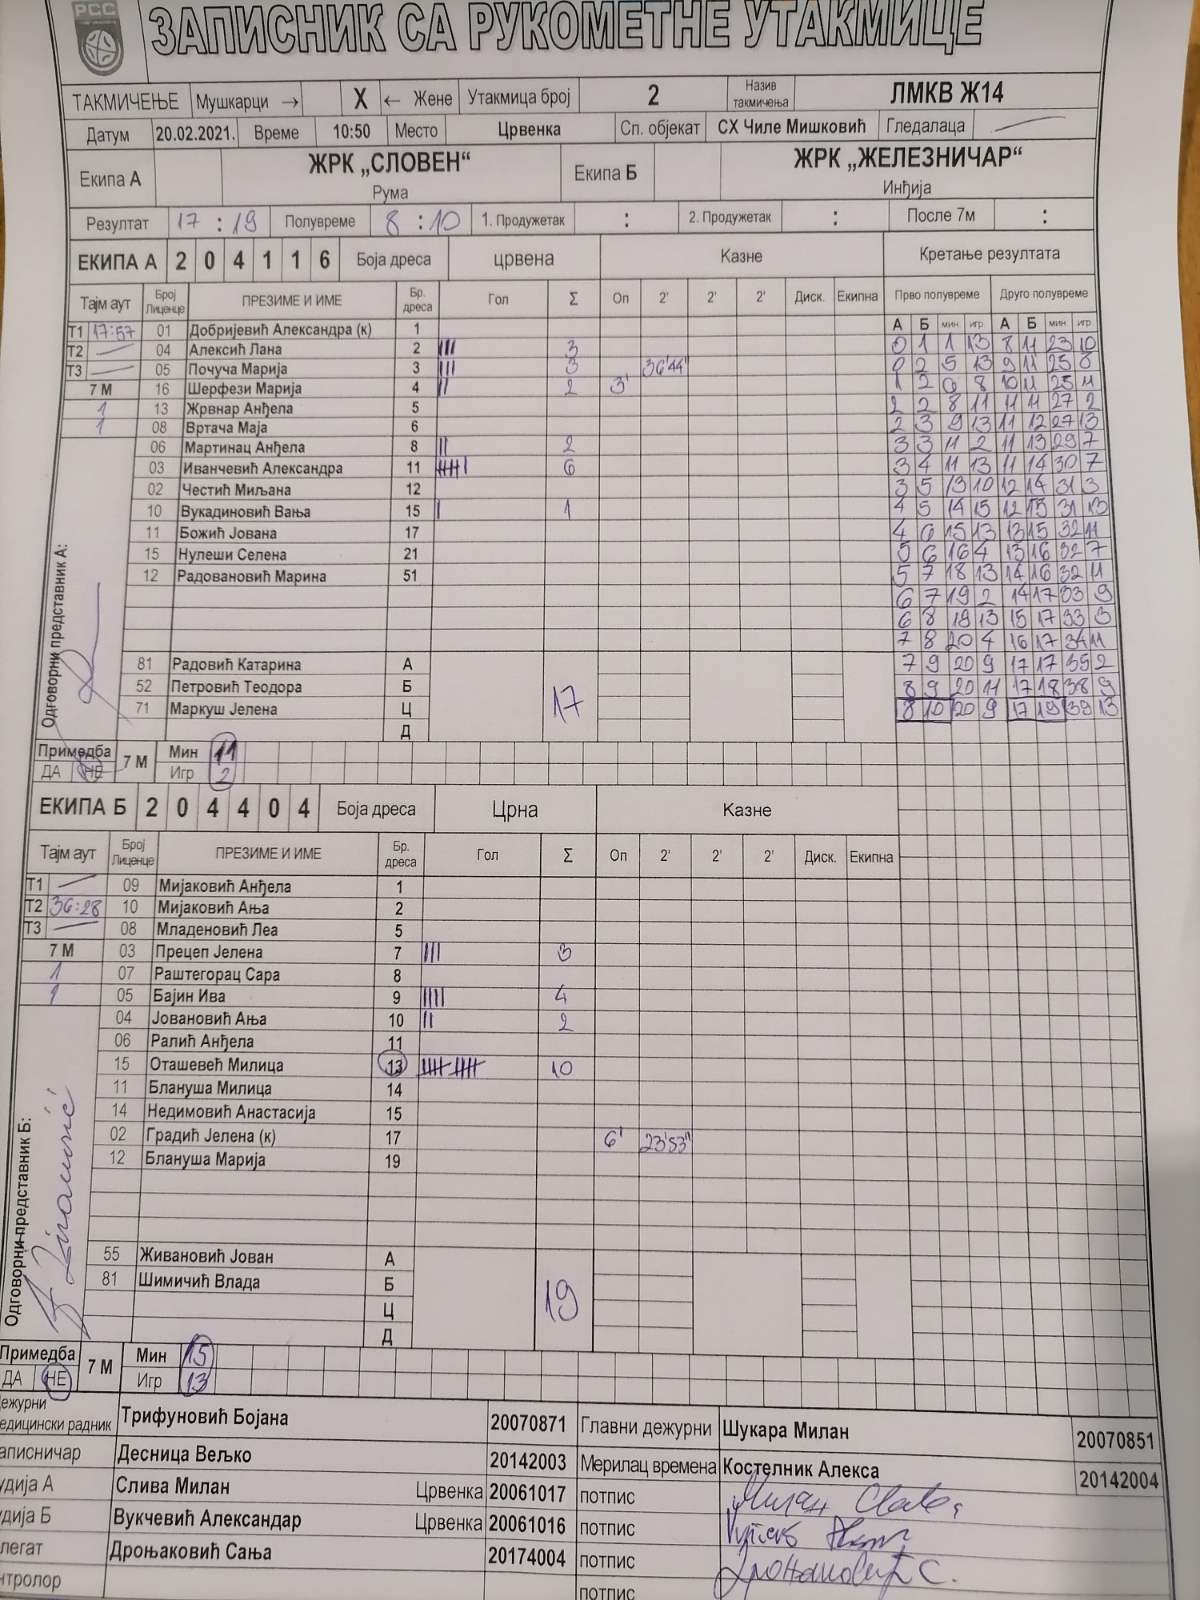 РСС
ЗАПИСНИК СА РУКОМЕТНЕ УТАКМИЦЕ
ТАКМИЧЕЊЕ Мушкарци → X ← Жене Утакмица број 2 Назив такмичења ЛМКВ Ж14
Датум 20.02.2021. Време 10:50 Место Црвенка Сп. објекат СХ Чиле Мишковић Гледалаца
Екипа А ЖРК „СЛОВЕН“ Рума Екипа Б ЖРК „ЖЕЛЕЗНИЧАР“ Инђија
Резултат 17 : 19 Полувреме 8 : 10 1. Продужетак : 2. Продужетак : После 7м :
ЕКИПА А 2 0 4 1 1 6 Боја дреса црвена Казне Кретање резултата
Тајм аут Број Лиценце ПРЕЗИМЕ И ИМЕ Бр. дреса Гол Σ Оп 2' 2' 2' Диск. Екипна Прво полувреме Друго полувреме
А Б мин игр А Б мин игр
Т1 17:57 01 Добријевић Александра (к) 1 0 1 1 13 8 11 23 10
Т2 04 Алексић Лана 2 3 0 2 5 13 9 11 25 8
Т3 05 Почуча Марија 3 3 36'44" 1 2 6 8 10 11 25 11
7 М 16 Шерфези Марија 4 2 3' 2 2 8 11 11 11 27 2
1 13 Жрвнар Анђела 5 2 3 9 13 11 12 27 13
1 08 Вртача Маја 6 3 3 11 2 11 13 29 7
06 Мартинац Анђела 8 2 3 4 11 13 11 14 30 7
03 Иванчевић Александра 11 6 3 5 13 10 12 14 31 3
02 Честић Миљана 12 4 5 14 15 12 15 31 13
10 Вукадиновић Вања 15 1 4 6 15 13 13 15 32 11
11 Божић Јована 17 5 6 16 4 13 16 32 7
15 Нулеши Селена 21 5 7 18 13 14 16 32 11
12 Радовановић Марина 51 6 7 19 2 14 17 33 9
6 8 19 13 15 17 33 3
7 8 20 4 16 17 34 11
81 Радовић Катарина А 7 9 20 9 17 17 35 2
52 Петровић Теодора Б 17 8 9 20 11 17 18 38 9
71 Маркуш Јелена Ц 8 10 20 9 17 19 39 13
Д
Одговорни представник А:
Примедба 7 М Мин 11
ДА НЕ Игр 2
ЕКИПА Б 2 0 4 4 0 4 Боја дреса Црна Казне
Тајм аут Број Лиценце ПРЕЗИМЕ И ИМЕ Бр. дреса Гол Σ Оп 2' 2' 2' Диск. Екипна
Т1 09 Мијаковић Анђела 1
Т2 36:28 10 Мијаковић Ања 2
Т3 08 Младеновић Леа 5
7 М 03 Прецеп Јелена 7 3
1 07 Раштегорац Сара 8
1 05 Бајин Ива 9 4
04 Јовановић Ања 10 2
06 Ралић Анђела 11
15 Оташевећ Милица 13 10
11 Блануша Милица 14
14 Недимовић Анастасија 15
02 Градић Јелена (к) 17 6' 23'53"
12 Блануша Марија 19
55 Живановић Јован А
81 Шимичић Влада Б 19
Ц
Д
Одговорни представник Б:
Примедба 7 М Мин 15
ДА НЕ Игр 13
Дежурни медицински радник Трифуновић Бојана 20070871 Главни дежурни Шукара Милан 20070851
аписничар Десница Вељко 20142003 Мерилац времена Костелник Алекса 20142004
удија А Слива Милан Црвенка 20061017 потпис
удија Б Вукчевић Александар Црвенка 20061016 потпис
легат Дроњаковић Сања 20174004 потпис Дроњаковић С.
нтролор потпис